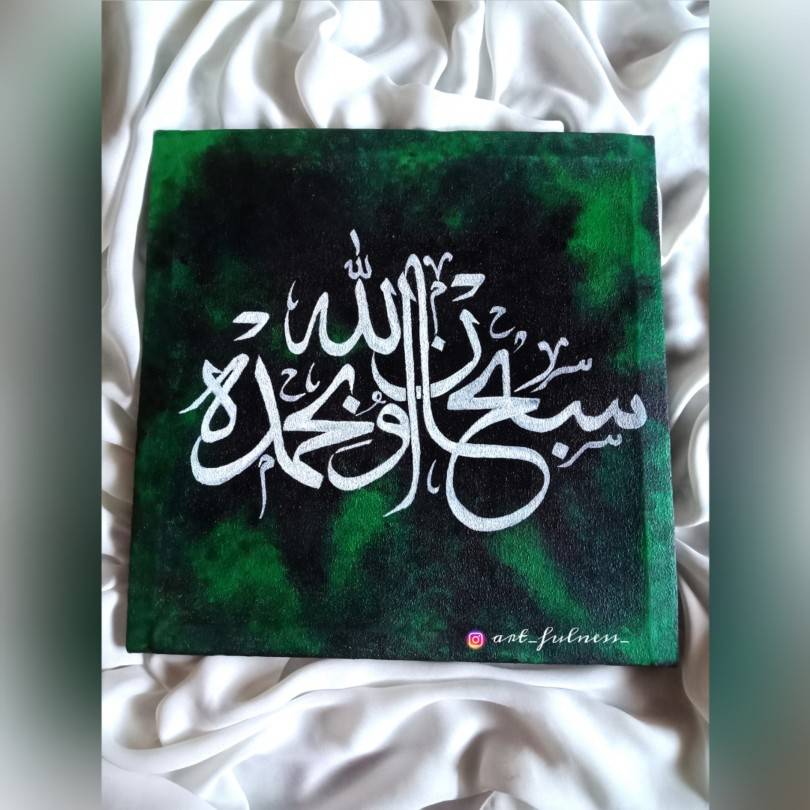 سبحان الله وبحمده
art_fulness_